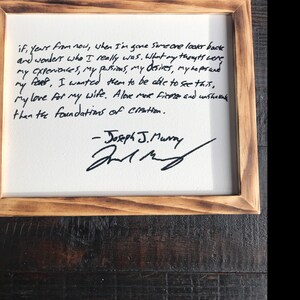 if, years from now, when I'm gone someone looks back
and wonders who I really was. What my thoughts were,
my experiences, my passions, my desires, my hopes and
my fears, I wanted them to be able to see this,
my love for my wife. A love more fierce and unshakable
than the foundations of creation.
- Joseph J. Murray